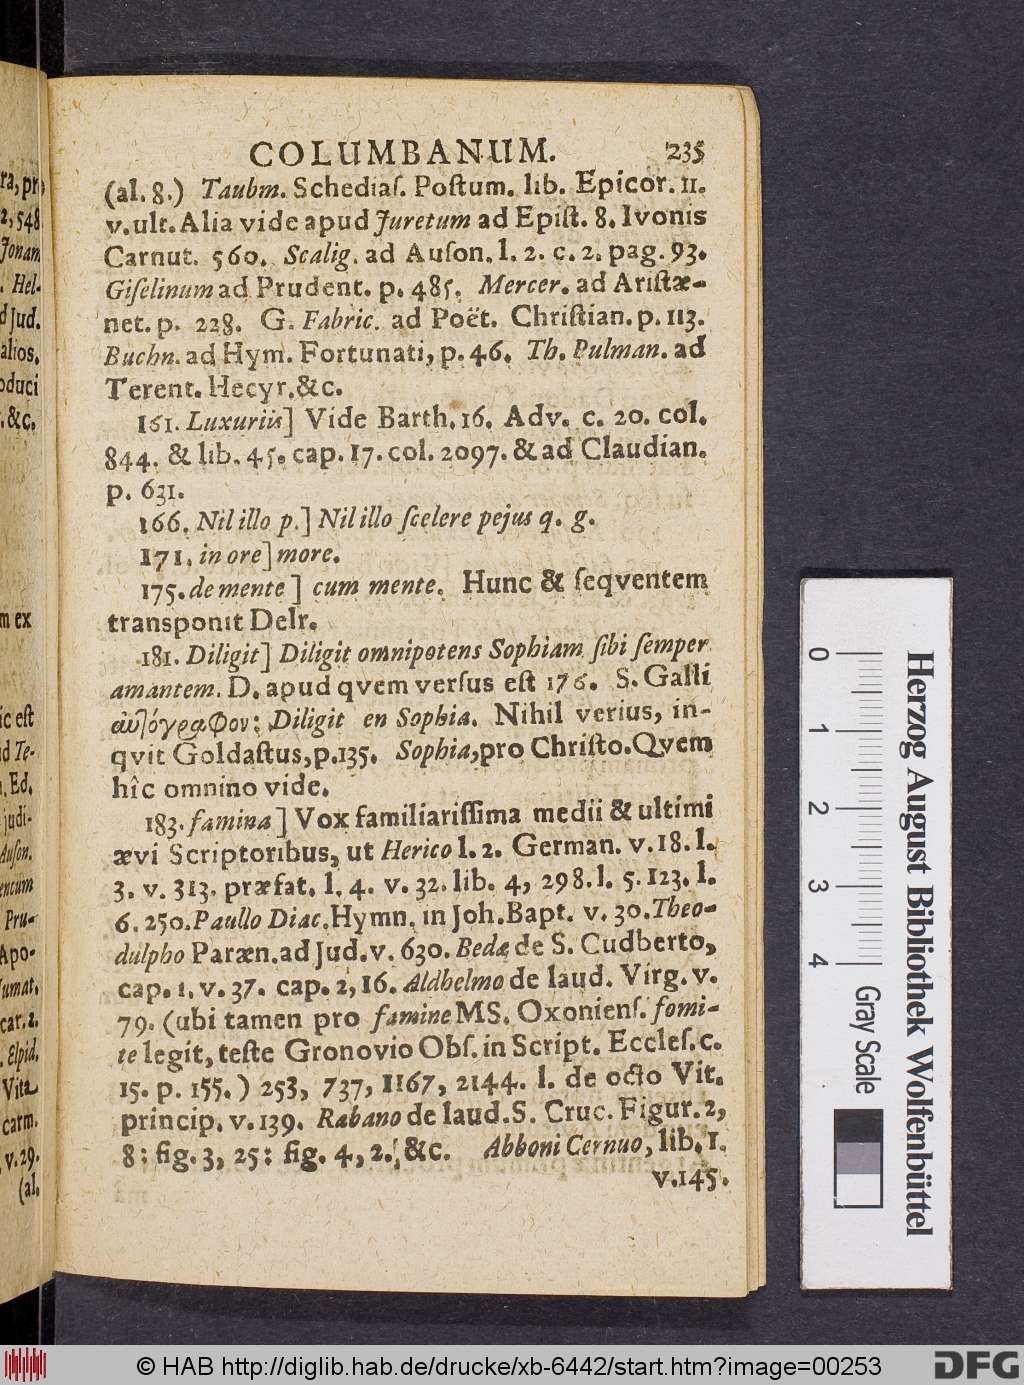 COLUMBANUM. 235
(al. 8.) Taubm. Schediaſ. Poſtum. lib. Epicor. 11.
v. ult. Alia vide apud Juretum ad Epiſt. 8. Ivonis
Carnut. 560. Scalig. ad Auſon. l. 2. c. 2. pag. 93.
Giſelinum ad Prudent. p. 485. Mercer. ad Ariſtæ-
net. p. 228. G. Fabric. ad Poët. Chriſtian. p. 113.
Buchn. ad Hym. Fortunati, p. 46. Th. Pulman. ad
Terent. Hecyr. &c.
161. Luxuriis] Vide Barth. 16. Adv. c. 20. col.
844. & lib. 45. cap. 17. col. 2097. & ad Claudian.
p. 631.
166. Nil illo p.] Nil illo ſcelere pejus q. g.
171. in ore] more.
175. de mente] cum mente. Hunc & ſeqventem
transponit Delr.
181. Diligit] Diligit omnipotens Sophiam ſibi ſemper
amantem. D. apud qvem verſus eſt 176. S. Galli
αὐτόγραφον: Diligit en Sophia. Nihil verius, in-
qvit Goldaſtus, p. 135. Sophia, pro Chriſto. Qvem
hîc omnino vide.
183. famina] Vox familiariſſima medii & ultimi
ævi Scriptoribus, ut Herico l. 2. German. v. 18. l.
3. v. 313. præfat. l. 4. v. 32. lib. 4, 298. l. 5. 123. l.
6. 250. Paullo Diac. Hymn. in Joh. Bapt. v. 30. Theo-
dulpho Paræn. ad Jud. v. 630. Bedæ de S. Cudberto,
cap. 1. v. 37. cap. 2, 16. Aldhelmo de laud. Virg. v.
79. (ubi tamen pro famine MS. Oxonienſ. fomi-
te legit, teſte Gronovio Obſ. in Script. Eccleſ. c.
15. p. 155.) 253, 737, 1167, 2144. l. de octo Vit.
princip. v. 139. Rabano de laud. S. Cruc. Figur. 2,
8: fig. 3, 25: fig. 4, 2. &c. Abboni Cernuo, lib. 1.
v. 145.
ra, pr
2, 548
Jonam
. Hel-
d Jud.
alios.
oduci
. &c.
m ex
ic eſt
d Te-
. Ed.
judi-
Auſon.
Pru-
Apo-
car. 2.
. Elpid.
Vita
carm.
v. 29.
(al.
0 1 2 3 4
Gray Scale
Herzog August Bibliothek Wolfenbüttel
© HAB http://diglib.hab.de/drucke/xb-6442/start.htm?image=00253
DFG